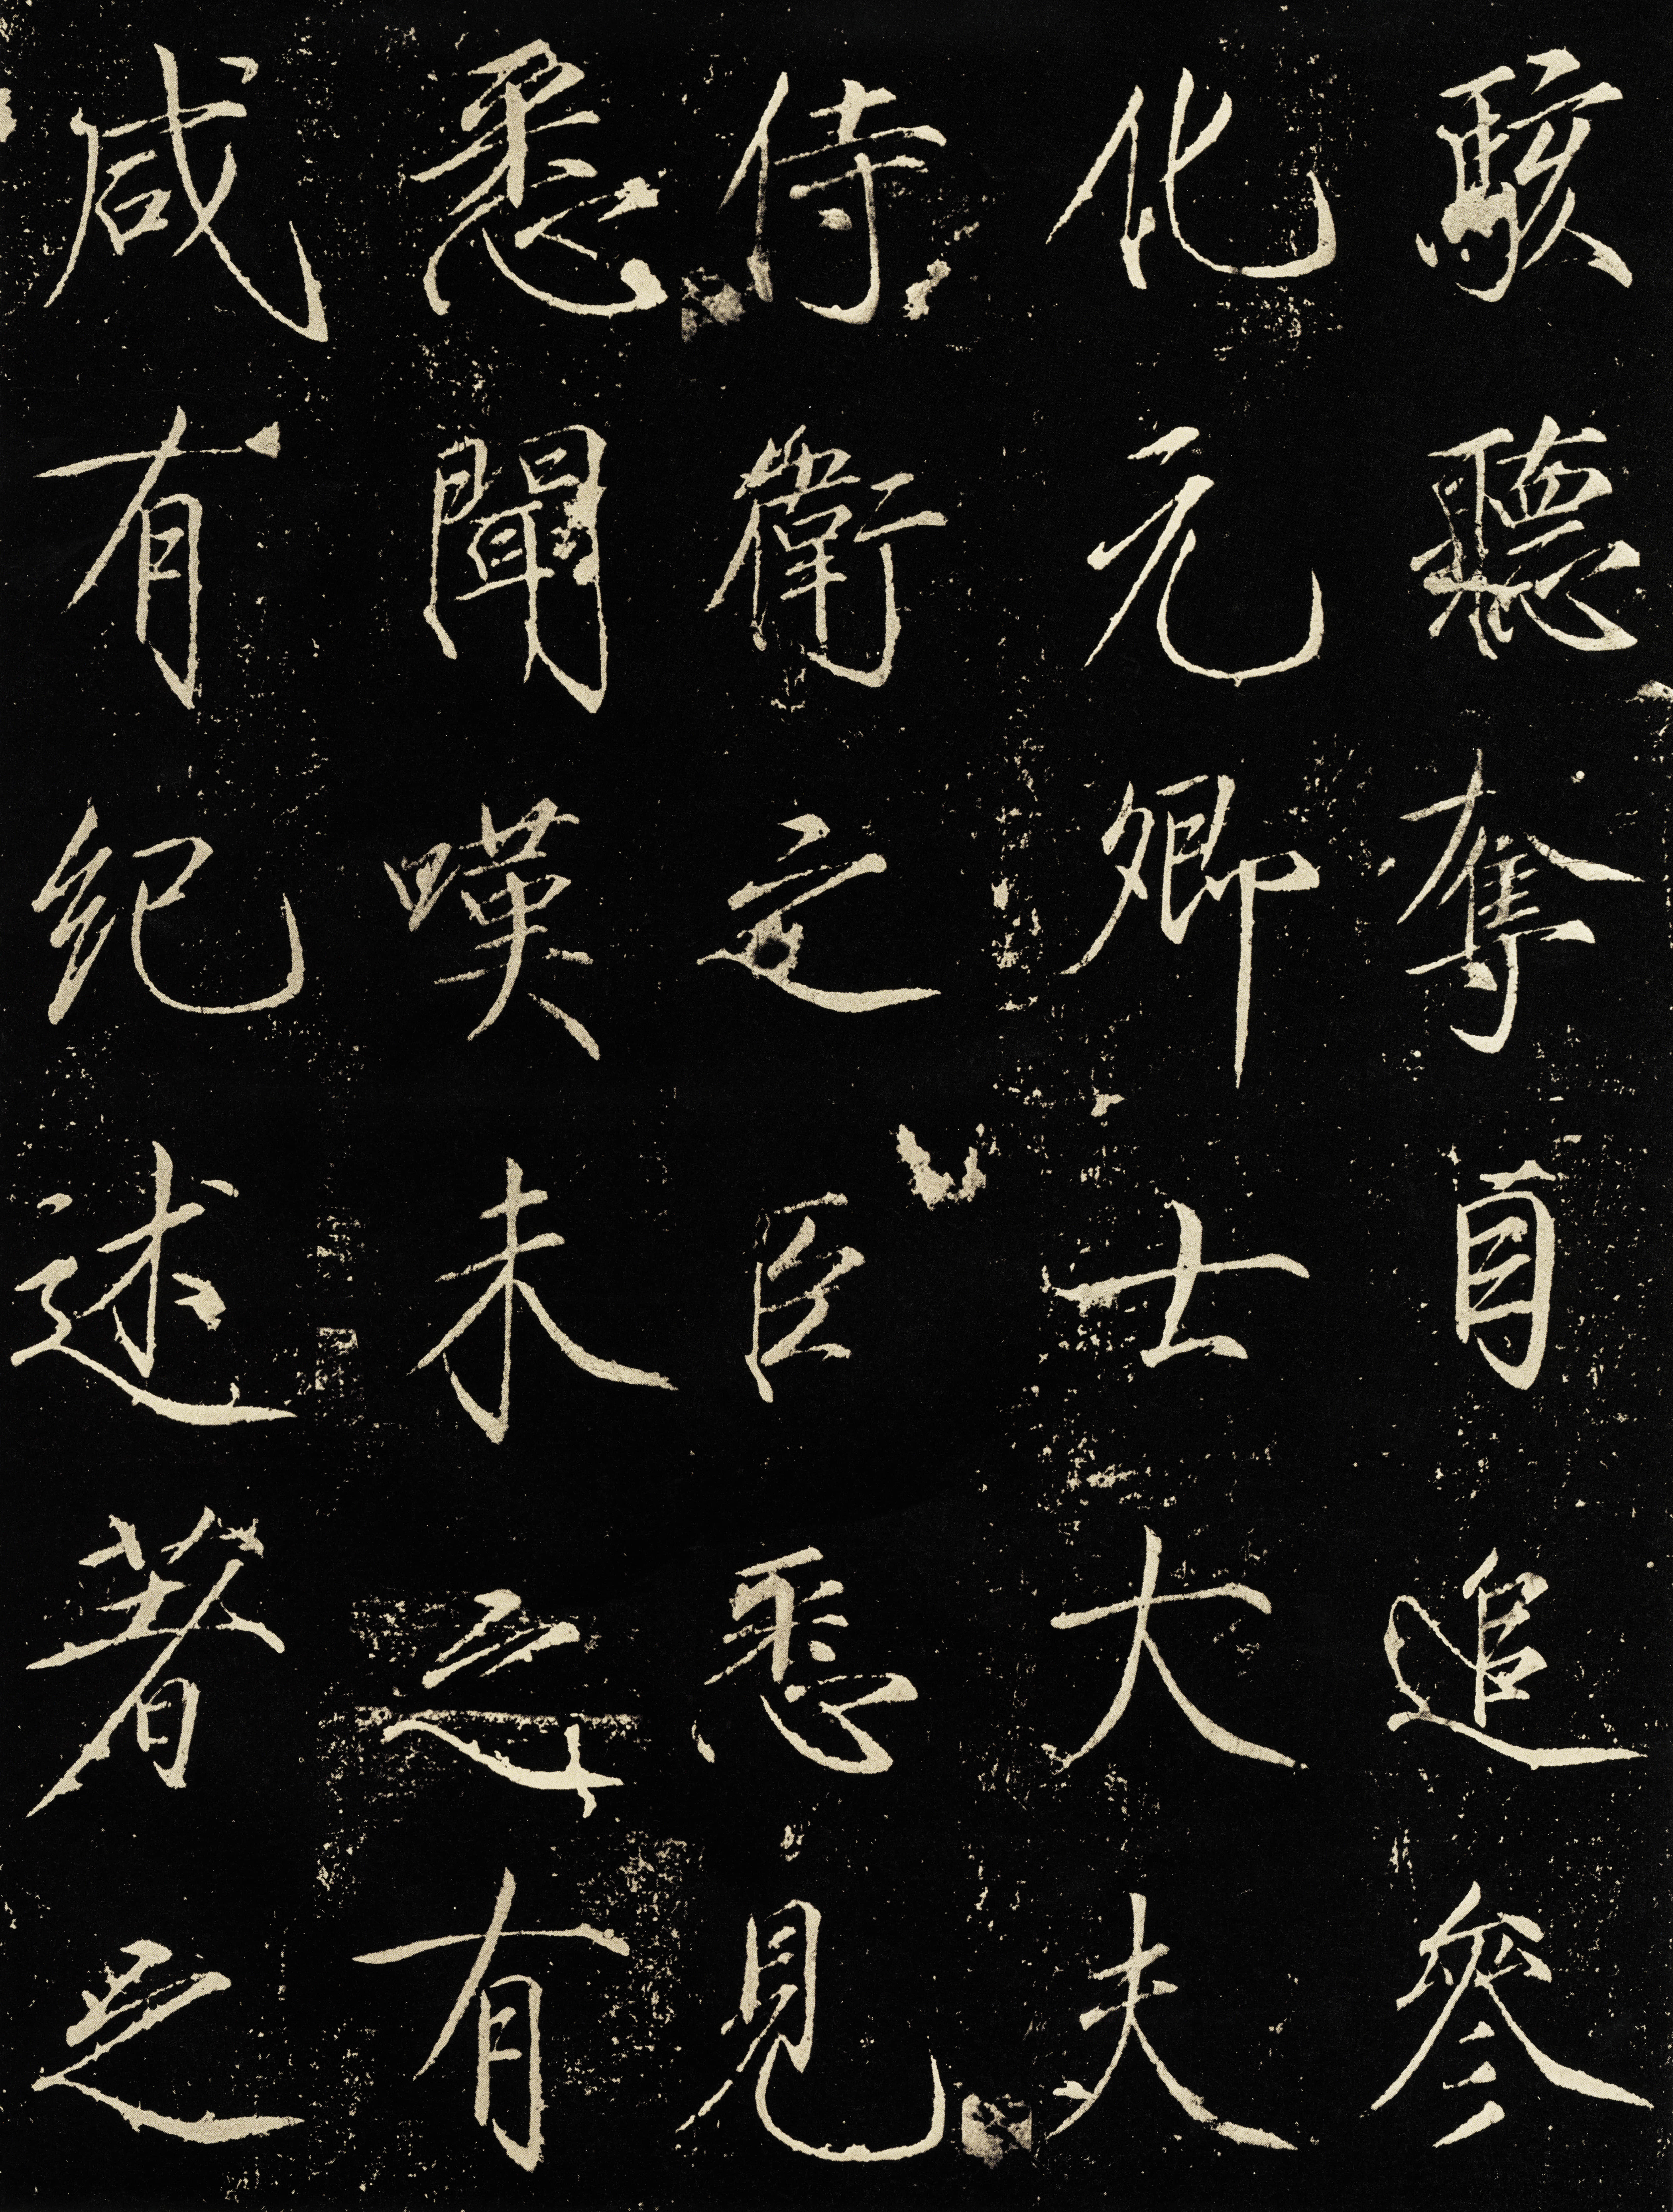 駭聽奪自追參
化元卿士大夫
侍衛之臣悉見
悉聞嘆未之有
咸有紀述著之